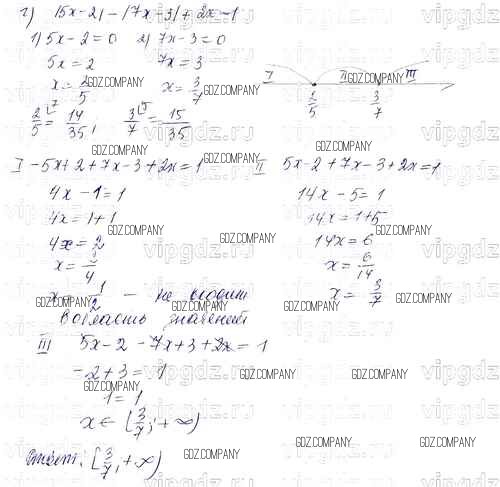 г) |5x-2| - |7x-3| + 2x = 1
1) 5x-2=0 2) 7x-3=0
5x=2 7x=3
x=2/5 x=3/7
2/5 = 14/35; 3/7 = 15/35
I II III
2/5 3/7
I -5x+2+7x-3+2x=1
4x-1=1
4x=1+1
4x=2
x=2/4
x=1/2 - не входит
в область значений
II 5x-2+7x-3+2x=1
14x-5=1
14x=1+5
14x=6
x=6/14
x=3/7
III 5x-2-7x+3+2x=1
-2+3=1
1=1
x∈[3/7;+∞)
Ответ: [3/7;+∞)
GDZ.COMPANY
vipgdz.ru